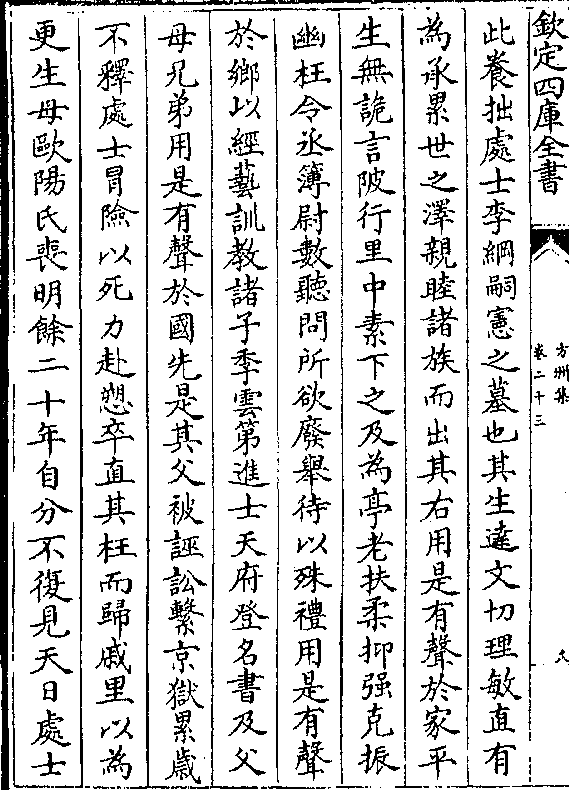 欽定四庫全書
方洲集
卷二十三
九
此養拙處士李綱嗣憲之墓也其生達文切理敏直有
為承累世之澤親睦諸族而出其右用是有聲於家平
生無詭言陂行里中素下之及為亭老扶柔抑强克振
幽枉令丞簿尉數聽問所欲廢舉待以殊禮用是有聲
於鄉以經藝訓教諸子季雲第進士天府登名書及父
母兄弟用是有聲於國先是其父被誣訟繫京獄累歲
不釋處士冒險以死力赴愬卒直其枉而歸戚里以為
更生母歐陽氏喪明餘二十年自分不復見天日處士